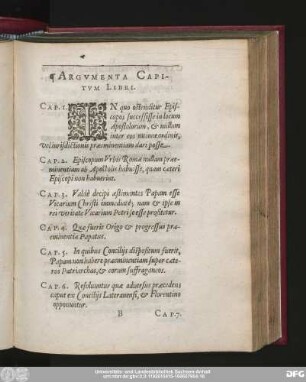 ¶ ARGVMENTA CAPI-
TVM LIBRI.
CAP. 1. IN quo ostenditur Epis-
copos successisse in locum
Apostolorum, & nullam
inter eos
vel iurisdictionis præeminentiam dari posse.
CAP. 2. Episcopum Vrbis Romæ nullam præ-
minentiam ab Apostolis habuisse, quam cæteri
Episcopi non habuerint.
CAP. 3. Valdè decipi æstimantes Papam esse
Vicarium Christi immediatè, nam & ipse in
rei veritate Vicarium Petri se esse profitetur.
CAP. 4. Quæ fuerit Origo & progressus præ-
eminentiæ Papatus.
CAP. 5. In quibus Concilijs dispositum fuerit,
Papam non habere præeminentiam super cæte-
ros Patriarchas, & eorum suffraganeos.
CAP. 6. Resoluuntur quæ aduersus præcedens
caput ex Concilijs Lateranensi, & Florentino
opponuntur.
B CAP. 7.
Universitäts- und Landesbibliothek Sachsen-Anhalt
DFG